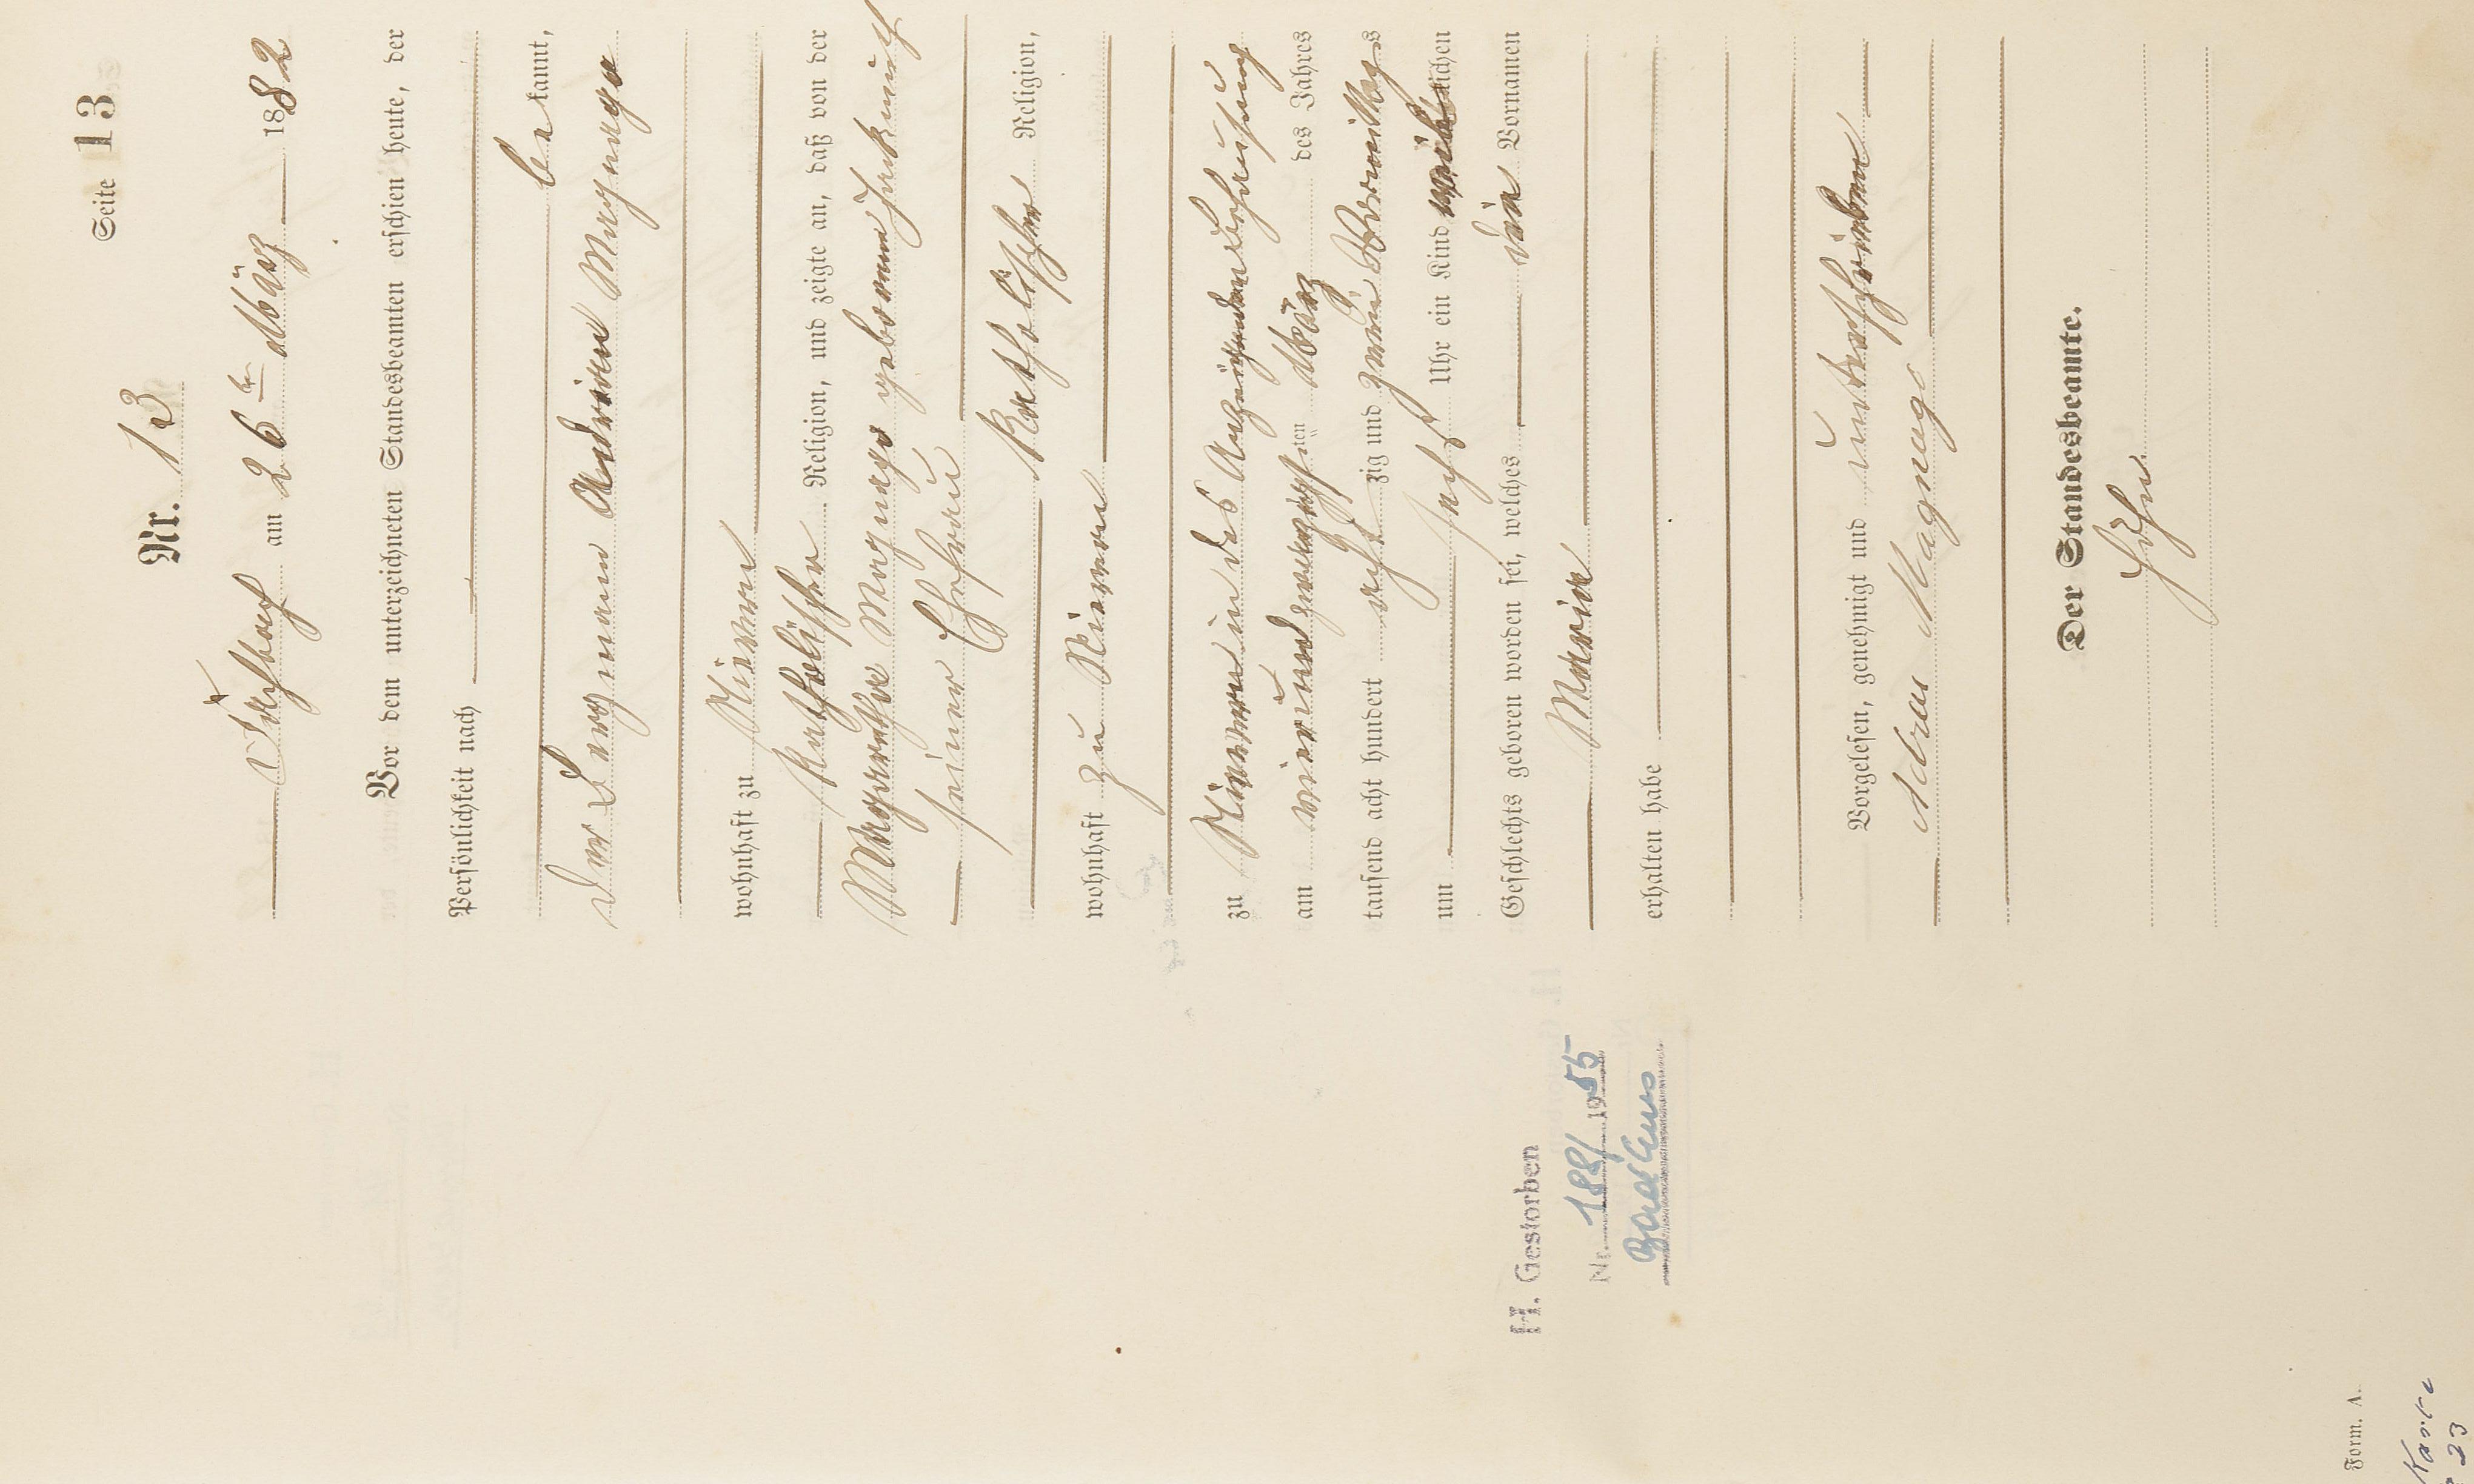 Seite 13
Nr. 13
Dachbach am 26ten März 1882
Vor dem unterzeichneten Standesbeamten erschien heute, der
Persönlichkeit nach
bekannt,
der Bergmann Adrian Magnago
wohnhaft zu Nievern
katholischer Religion, und zeigte an, daß von der
Magaretha Magnago geborene
seiner Ehefrau
katholischer Religion,
wohnhaft zu Nievern
zu Nievern in des Anzeigenden Behausung
am vierundzwanzigsten März des Jahres
tausend acht hundert achtzig und zwei Vormittags
um sechs Uhr ein Kind weiblichen
Geschlechts geboren worden sei, welches die Vornamen
Maria
erhalten habe
Vorgelesen, genehmigt und unterschrieben
Adrian Magnago
Der Standesbeamte.
Höhn
H. Gestorben
Nr. 188/1955
Bad Ems
Form. A.
Karte
23